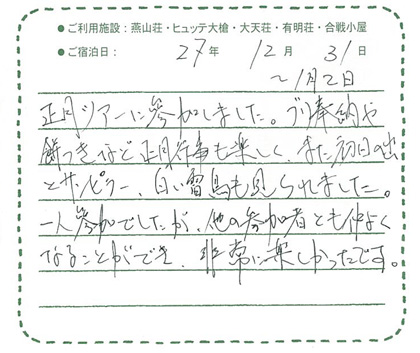 ●ご利用施設：燕山荘・ヒュッテ大槍・大天荘・有明荘・合戦小屋
●ご宿泊日： 27年 12月 31日
～1月2日
正月ツアーに参加しました。ブリ奉納や
餅つきなど正月行事も楽しく、また初日の出
とサンピラー、白い雷鳥も見られました。
一人参加でしたが、他の参加者とも仲よく
なることができ、非常に楽しかったです。